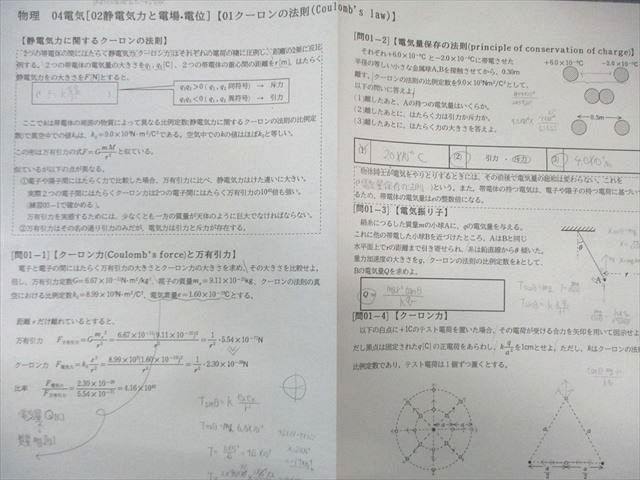 物理 04電気[02静電気力と電場・電位]【01クーロンの法則(Coulomb's law)】
【静電気力に関するクーロンの法則】
2つの帯電体の間にはたらく静電気力(クーロン力)はそれぞれの電荷の積に比例し、距離の2乗に反比
例する。2つの帯電体の電気量の大きさをq₁,q₂[C]、2つの帯電体の重心間の距離をr[m]、はたらく
静電気力の大きさをF[N]とすると、
q₁q₂>0 (q₁, q₂ 同符号) → 斥力
q₁q₂<0 (q₁, q₂ 異符号) → 引力
ここでkは帯電体の周囲の物質によって異なる比例定数(静電気力に関するクーロンの法則の比例定
数)で真空中での値k₀は、k₀=9.0×10⁹N·m²/C²である。空気中でのkの値はほぼk₀と等しい。
この形は万有引力の式F=G mM/r² と似ている。
似ているが以下の点が異なる。
①電子や陽子の間にはたらく力で比較した場合、万有引力に比べ、静電気力はけた違いに大きい。
実際2つの電子間にはたらくクーロン力は2つの電子間にはたらく万有引力の10⁴²倍も強い。
(練習01-1で確かめる)
万有引力を実感するためには、少なくとも一方の質量が天体のように巨大でなければならない。
②万有引力はその名の通り引力のみだが、電気力は引力と斥力が存在する。
[問01-1]【クーロン力(Coulomb's force)と万有引力】
電子と電子の間にはたらく万有引力の大きさとクーロン力の大きさを求め、その大きさを比較せよ。
但し、万有引力定数G=6.67×10⁻¹¹N·m²/kg²、電子の質量mₑ=9.11×10⁻³¹kg、クーロンの法則の真
空における比例定数k₀=8.99×10⁹N·m²/C²、電気素量e=1.60×10⁻¹⁹Cとする。
距離 r だけ離れているとすると、
万有引力 F万有引力=G mₑ²/r²=6.67×10⁻¹¹(9.11×10⁻³¹)²/r²=1/r²·5.54×10⁻⁷¹N
クーロン力 F電気力=k₀ e²/r²=8.99×10⁹(1.60×10⁻¹⁹)²/r²=1/r²·2.30×10⁻²⁸N
比率 F電気力/F万有引力=2.30×10⁻²⁸/5.54×10⁻⁷¹=4.16×10⁴²
電気量 Q[C]
[問01-2]【電気量保存の法則(principle of conservation of charge)】
それぞれ+6.0×10⁻⁶C と-2.0×10⁻⁶Cに帯電させた
半径の等しい小さな金属球A,Bを接触させてから、0.30m
離す。クーロンの法則の比例定数を9.0×10⁹Nm²/C²として、
以下の問いに答えよ。
(1)離したあと、Aの持つ電気量はいくらか。
(2)離したあとに、はたらく力は引力か斥力か。
(3)離したあとに、はたらく力の大きさを答えよ。
(1) 2.0×10⁻⁶ C (2) 引力 ・ 斥力 (3)
物体同士が電気をやりとりするときには、その前後で電気量の総和は変わらない。これを
という。また、帯電体の持つ電気は、電子や陽子の持つ電荷に基づい
るため、帯電体の電気量はeの整数倍になる。
[問01-3]【電気振り子】
絹糸につるした質量mの小球Aに、qの電気量を与える。
これに他の帯電した小球Bを近づけたところ、AはBと同じ
水平面上でrの距離まで引き寄せられ、糸は鉛直線からθ傾いた。
重力加速度の大きさをg、クーロンの法則の比例定数をkとして、
Bの電気量Qを求めよ。
Q=
[問01-4]【クーロン力】
以下の白点に+1Cのテスト電荷を置いた場合、その電荷が受ける合力を矢印を用いて図示せよ
だし黒点は固定されたq[C]の正電荷をあらわし、k·q/a²を1cmとせよ。ただし、kはクーロンの法則
比例定数であり、テスト電荷は1個ずつ置くとする。